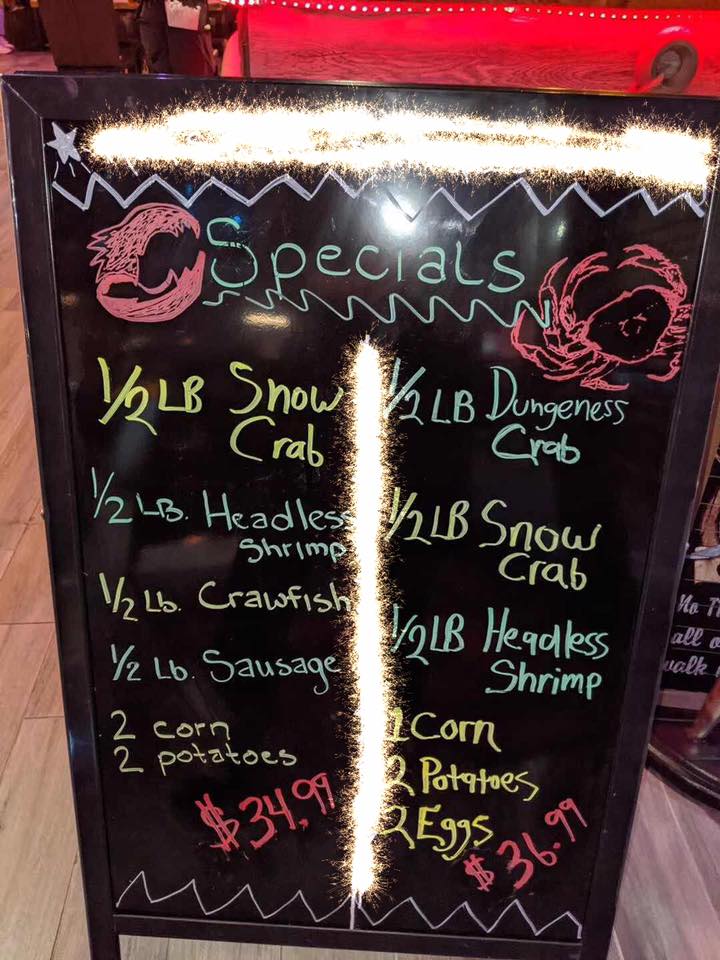 Specials
1/2 LB Snow
Crab
1/2 LB. Headless
Shrimp
1/2 Lb. Crawfish
1/2 Lb. Sausage
2 corn
2 potatoes
$34.99
1/2 LB Dungeness
Crab
1/2 LB Snow
Crab
1/2 LB Headless
Shrimp
Corn
2 Potatoes
2 Eggs
$36.99
No
all
walk